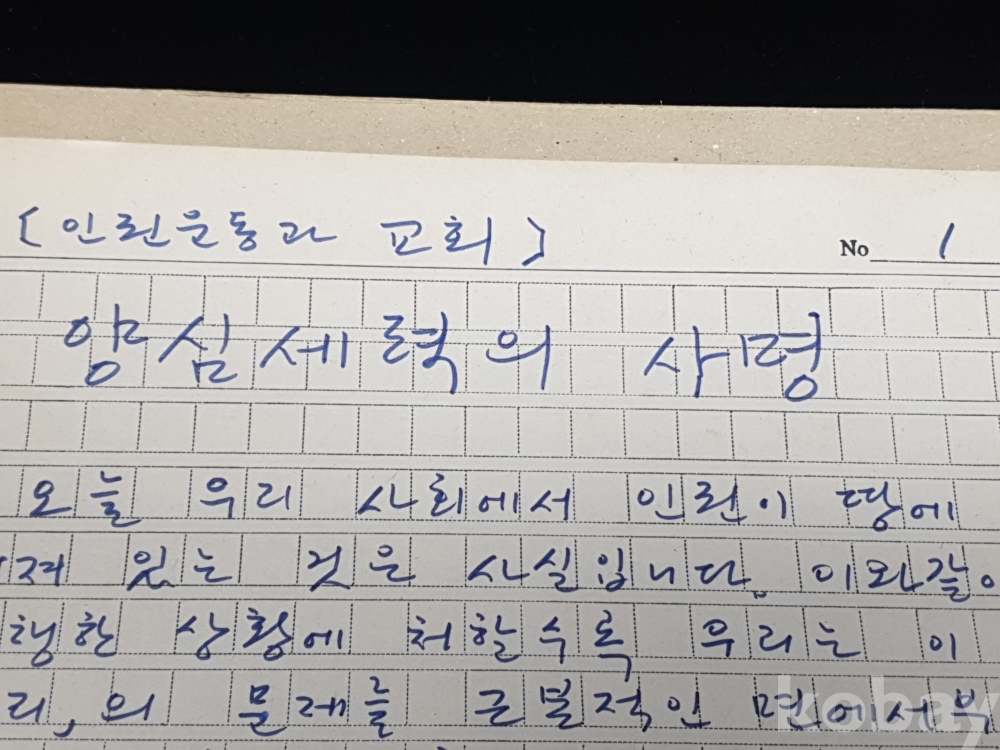 [인권운동과 교회]
No 1
양심세력의 사명
오늘 우리 사회에서 인권이 땅에
져 있는 것은 사실입니다. 이와같이
행한 상황에 처할수록 우리는 이
리, 의 문제를 근본적인 면에서부
kobay